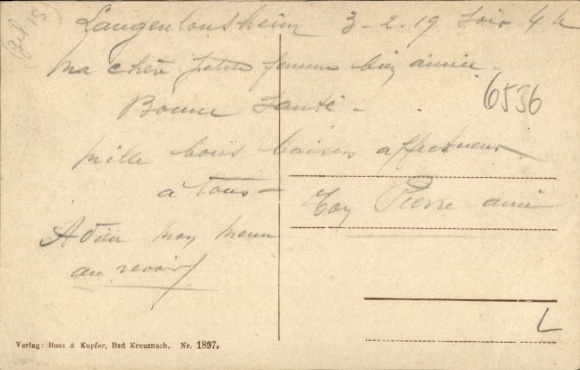 Langenlonsheim 3-2.19 Soir 4 h
Ma chère petite femme bien aimée.
6536
Bonne Santé -
Mille bons baisers affectueux
à tous -
Ton Pierre aimé
Adieu mon
au revoir
L
Verlag: Buss & Kupfer, Bad Kreuznach. Nr. 1897.